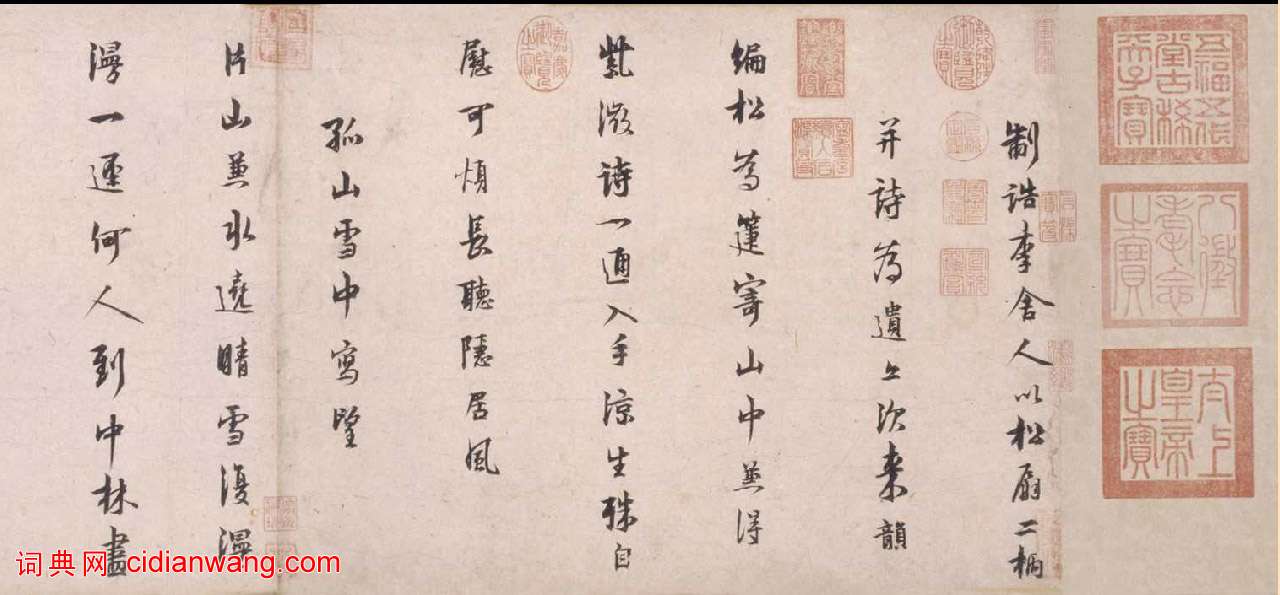 制誥李舍人以松扇二柄
并詩為遺亦次來韻
編松為箑寄山中兼得
紫微詩一通入手涼生殊自
慰可煩長聽隱居風
孤山雪中寫望
片山兼水遶晴雪復漫
漫一逕何人到中林盡
五福五代堂古稀天子寶
八徵耄念之寶
太上皇帝之寶
嘉慶御覽之寶
词典网 cidianwang.com